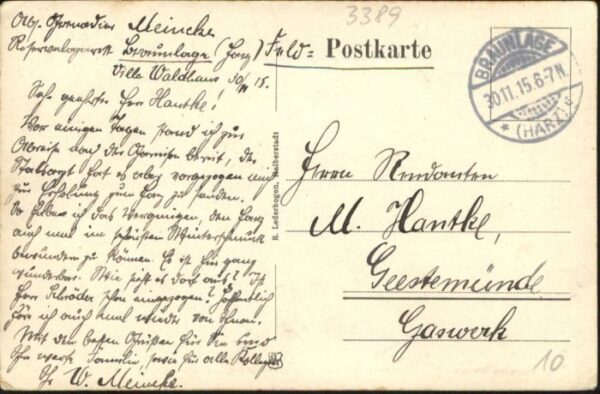 3389
Abs. Grenadier Meincke
Reservelazarett Braunlage (Harz)
Villa Waldhaus 30/11 15.
Feld= Postkarte
BRAUNLAGE
30.11.15.6-7N.
* (HARZ) c
Sehr geehrter Herr Hantke!
Vor einigen Tagen stand ich zur
Abreise von der bereit, der
Stabsarzt hat es aber vorgezogen mich
zur Erholung zum Harz zu senden.
So habe ich das Vergnügen, den Harz
auch mal im schönsten Winterschmuck
bewundern zu können. Es ist hier ganz
wunderbar. Wie sieht es dort aus? Ist
Herr Schröder schon eingezogen? Hoffentlich
höre ich auch mal wieder von Ihnen.
Mit den besten Grüßen für Sie und
Ihre werte Familie, sowie für alle Kollegen
Ihr W. Meincke.
R. Lederbogen, Halberstadt
Herrn Rendanten
M. Hantke,
Geestemünde
Gaswerk
10